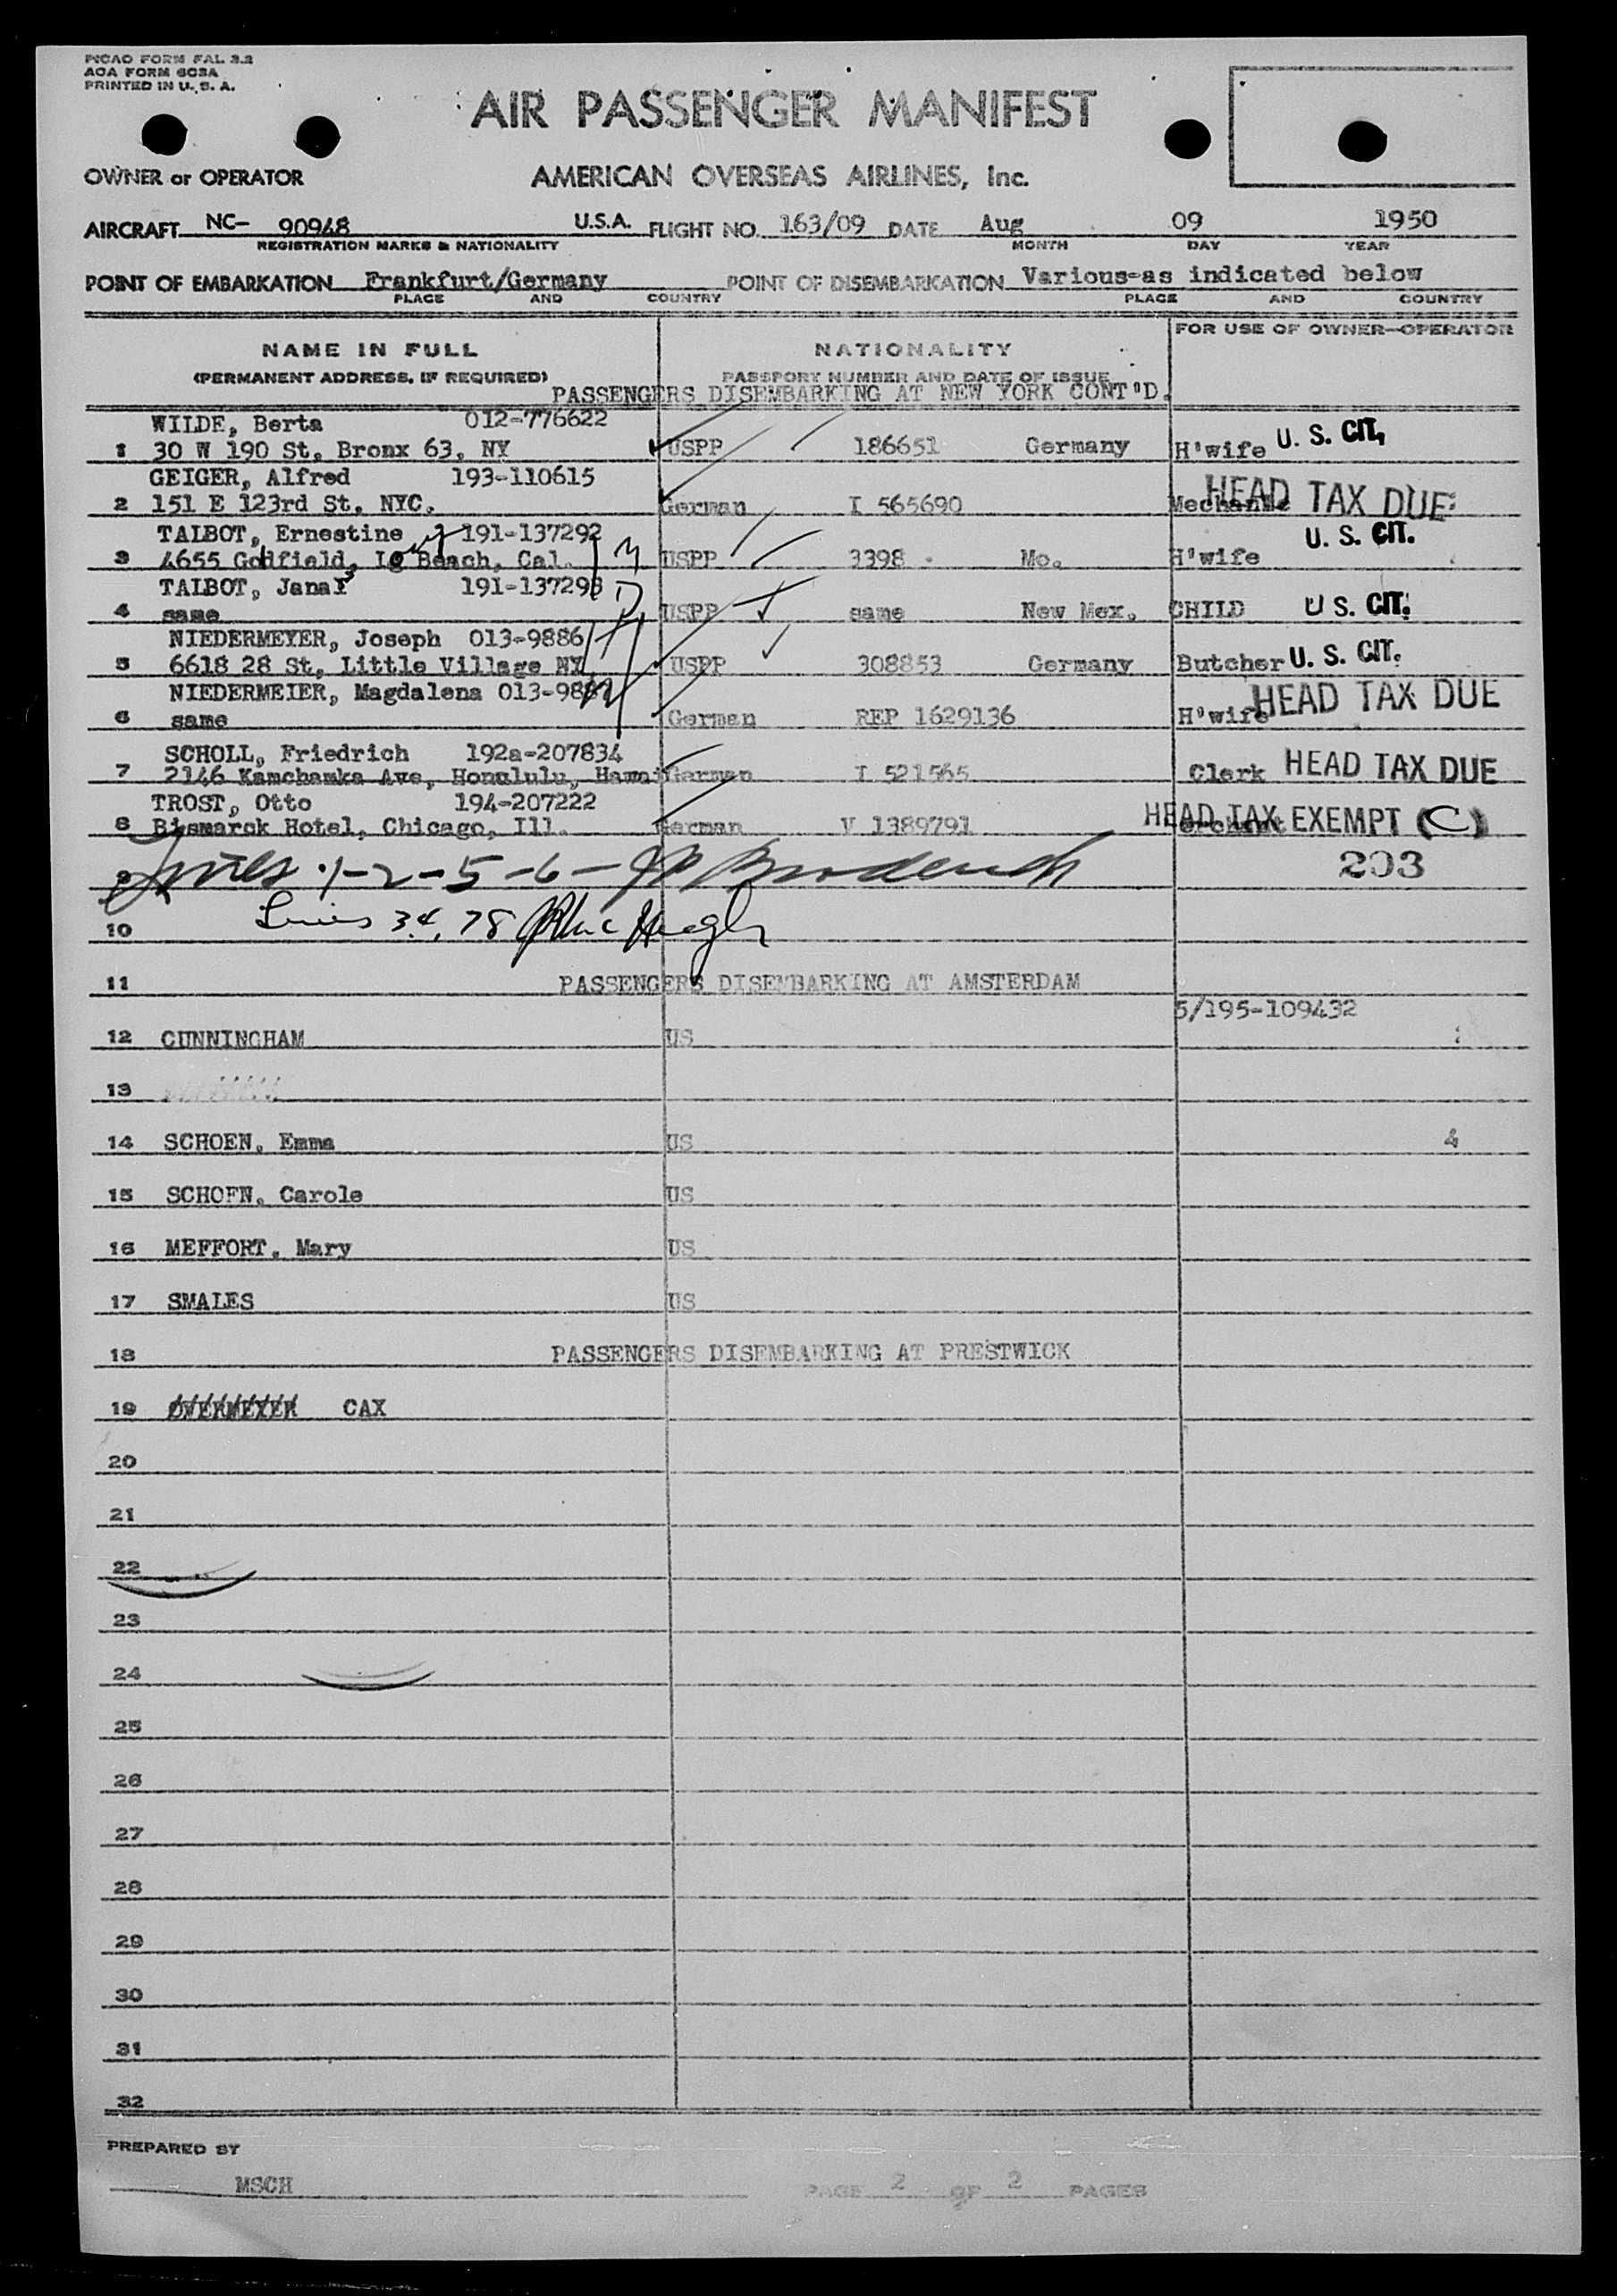 PICAO FORM FAL 3.2
AOA FORM 603A
PRINTED IN U. S. A.
AIR PASSENGER MANIFEST
OWNER or OPERATOR AMERICAN OVERSEAS AIRLINES, Inc.
AIRCRAFT NC- 90948 U.S.A. FLIGHT NO. 163/09 DATE Aug 09 1950
REGISTRATION MARKS & NATIONALITY MONTH DAY YEAR
POINT OF EMBARKATION Frankfurt/Germany POINT OF DISEMBARKATION Various-as indicated below
PLACE AND COUNTRY PLACE AND COUNTRY
FOR USE OF OWNER-OPERATOR
NAME IN FULL NATIONALITY
(PERMANENT ADDRESS, IF REQUIRED) PASSPORT NUMBER AND DATE OF ISSUE
PASSENGERS DISEMBARKING AT NEW YORK CONT'D.
WILDE, Berta 012-776622
1 30 W 190 St, Bronx 63, NY USPP 186651 Germany H'wife U. S. CIT.
GEIGER, Alfred 193-110615
2 151 E 123rd St, NYC. German I 565690 Mechanic HEAD TAX DUE
TALBOT, Ernestine 191-137292
3 4655 Godfield, Lg Beach, Cal. USPP 3398 Mo. H'wife U. S. CIT.
TALBOT, Jana 191-137293
4 same USPP same New Mex. CHILD U S. CIT.
NIEDERMEYER, Joseph 013-9886
5 6618 28 St, Little Village NY USPP 308853 Germany Butcher U. S. CIT.
NIEDERMEIER, Magdalena 013-9887
6 same German REP 1629136 H'wife HEAD TAX DUE
SCHOLL, Friedrich 192a-207834
7 2146 Kamchamka Ave, Honolulu, Hawai German I 521565 Clerk HEAD TAX DUE
TROST, Otto 194-207222
8 Bismarck Hotel, Chicago, Ill. German V 1389791 HEAD TAX EXEMPT (C)
9 Lines 1-2-5-6- 203
10 Lines 3.4, 78
11 PASSENGERS DISEMBARKING AT AMSTERDAM
5/195-109432
12 CUNNINGHAM US
13
14 SCHOEN, Emma US 4
15 SCHOEN, Carole US
16 MEFFORT, Mary US
17 SMALES US
18 PASSENGERS DISEMBARKING AT PRESTWICK
19 OVERMEYER CAX
20
21
22
23
24
25
26
27
28
29
30
31
32
PREPARED BY
MSCH PAGE 2 OF 2 PAGES